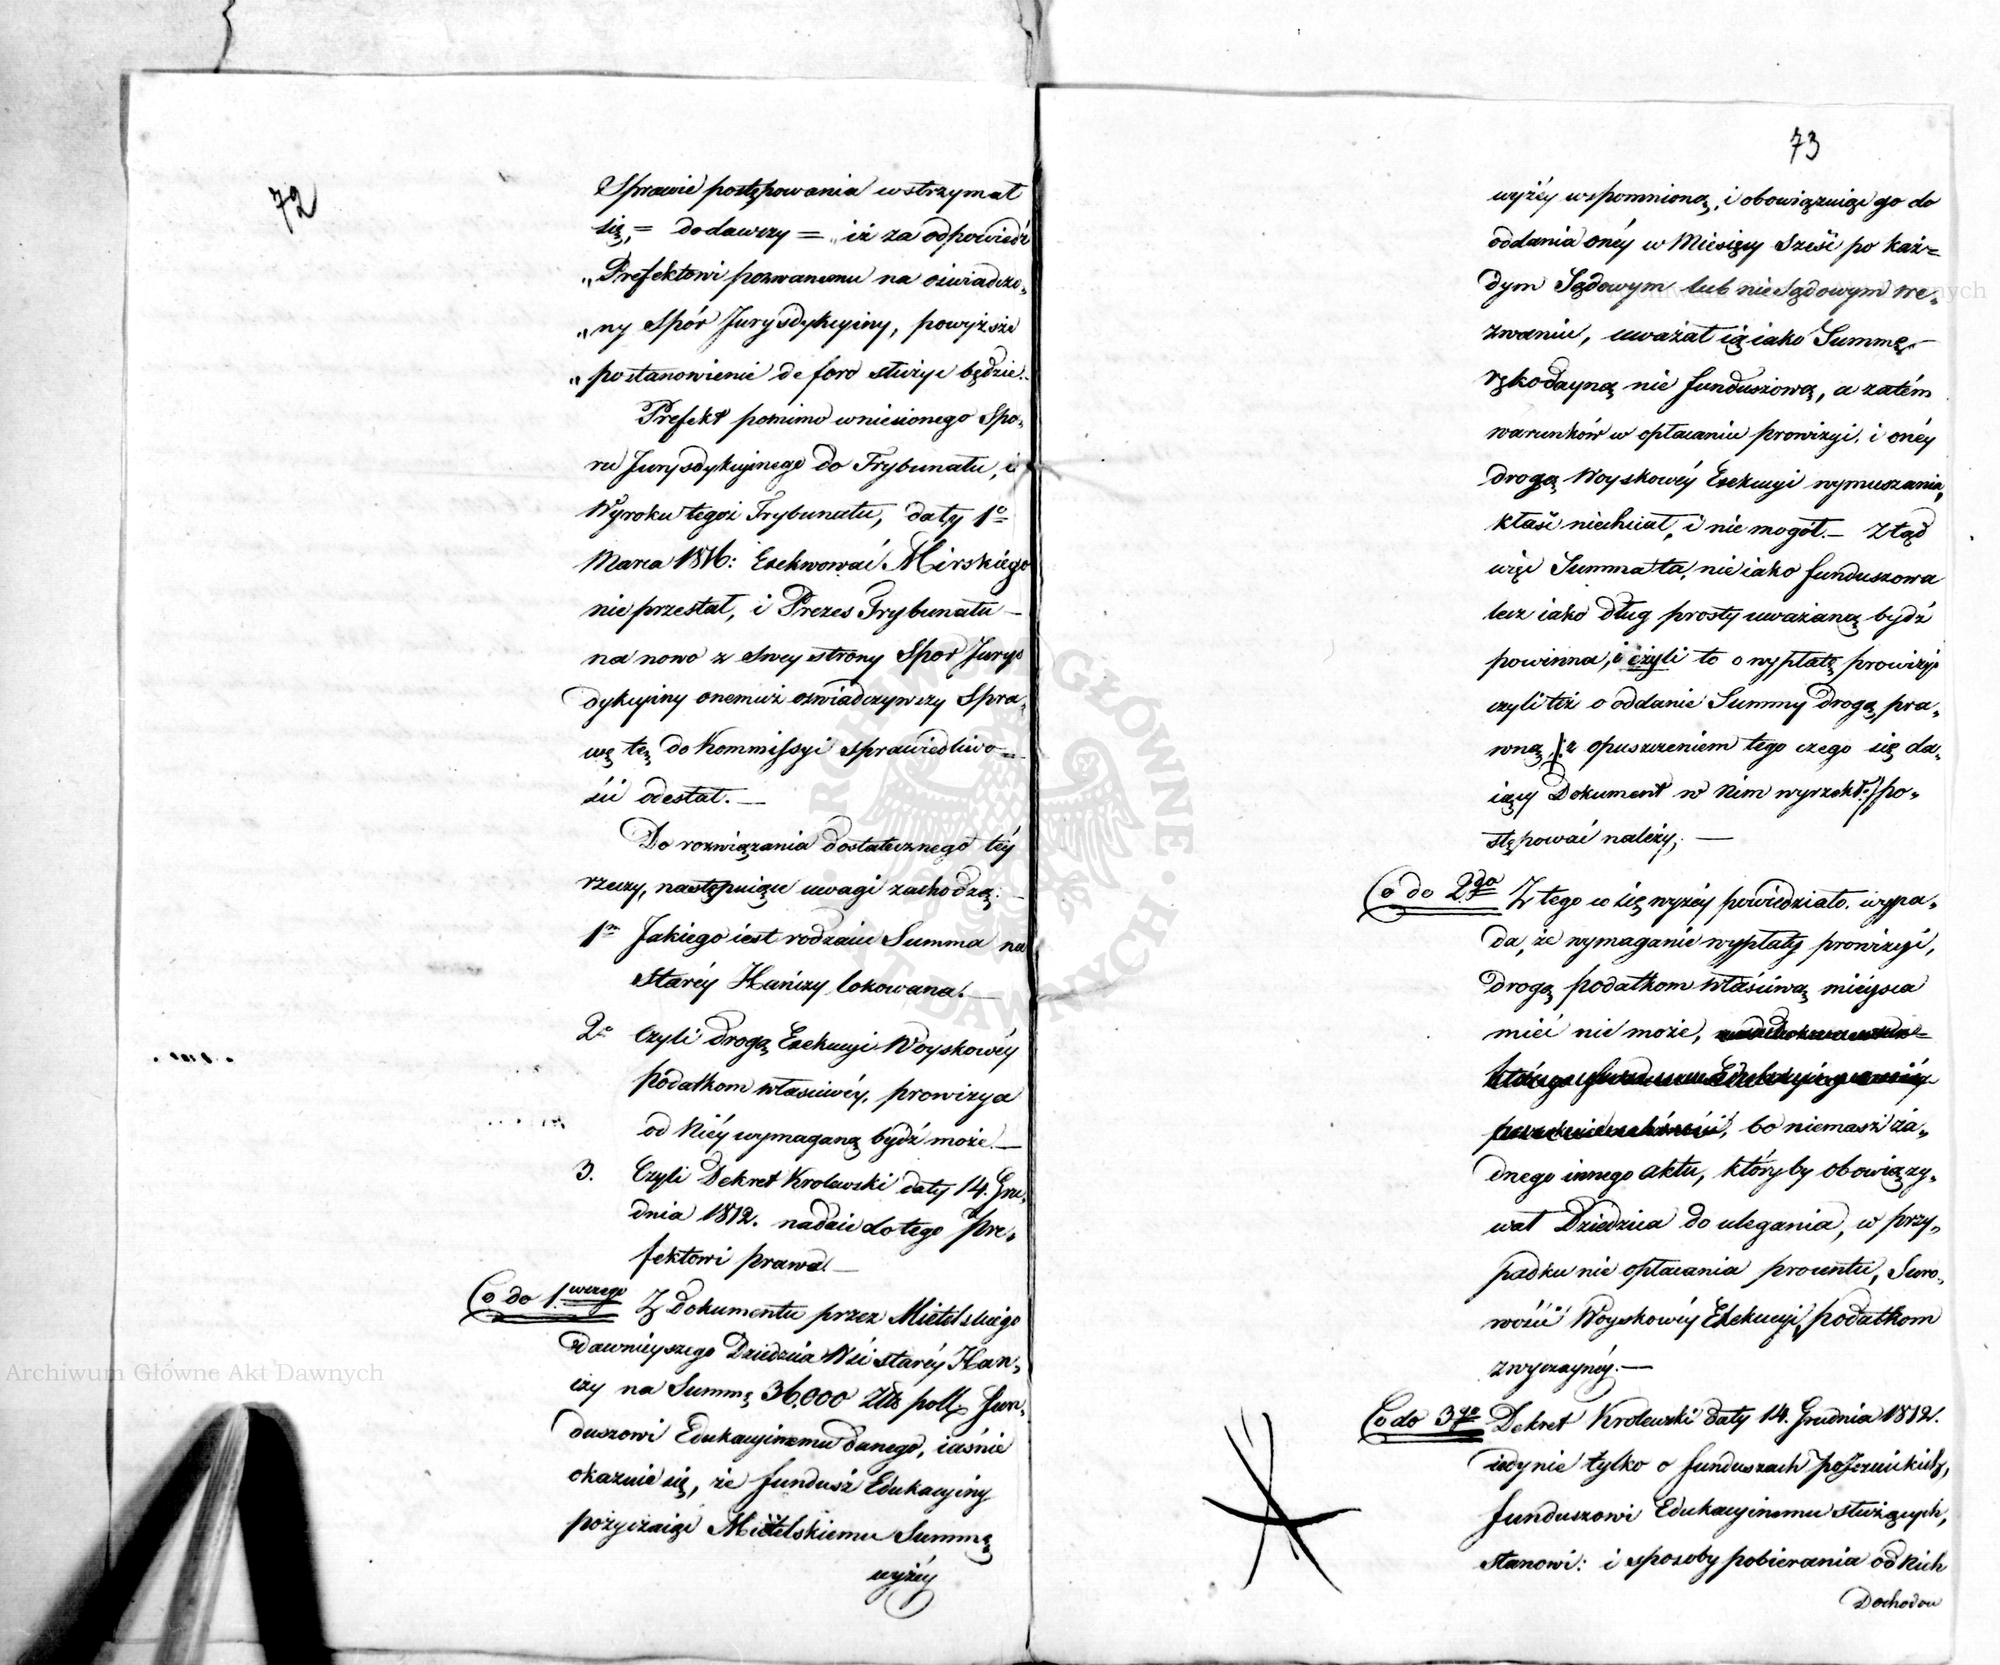 72
Sprawie postępowania wstrzymał
się, = dodawszy = „iż za odpowiedź
„Prefektowi pozwanemu na oświadczo-
„ny Spór Jurysdykcyiny, powyższe
„postanowienie de foro służyć będzie.
Prefekt pomimo wniesionego Spo-
ru Jurysdykcyinego do Trybunału, i
Wyroku tegoż Trybunału, daty 1o
Marca 1816: Exekwować Mirskiego
nie przestał, i Prezes Trybunału —
na nowo z swey strony Spor Jurys
dykcyiny onemuż oświadczywszy Spra-
wę tę do Kommissyi sprawiedliwo-
ści odesłał. —
Do rozwiązania dostatecznego téy
rzeczy, następuiące uwagi zachodzą: —
1o Jakiego iest rodzaiu Summa na
Staréy Hańczy lokowana. —
2o Czyli drogą Exekucyi Woyskowéy
podatkom właściwéy, prowizya
od Niéy wymaganą bydź może. —
3. Czyli Dekret Krolewski daty 14. Gru-
dnia 1812. nadaie do tego Pre-
fektowi prawa. —
Co do 1.wszego Z Dokumentu przez Mietelskiego
dawnieyszego Dziedzica Wsi staréy Han-
czy na Summę 36,000 Złł. poll. Fun-
duszowi Edukacyinemu danego, iaśnie
okazuie się, że fundusz Edukacyiny
pożyczaiąc Mietelskiemu Summę
wyżéy
73
wyżéy wspomnioną, i obowiązuiąc go do
oddania onéy w Miesięcy Sześć po każ-
dym Sądowym lub nieSądowym we-
zwaniu, uważał ią iako Summę —
rękodayną nie funduszową, a zatém
warunków w opłacaniu prowizyi, i onéy
drogą Woyskowéy Exekucyi wymuszania,
kłaść niechciał, i nie mogół. — Ztąd
więc Summa ta, nie iako funduszowa
lecz iako dług prosty uważaną bydź
powinna, i czyli to o wypłatę prowizyi
czyli też o oddanie Summy drogą pra-
wną /: z opuszczeniem tego czego się da-
iący Dokument w Nim wyrzekł :/ po-
stępować należy; —
Co do 2.do Z tego co się wyżéy powiedziało, wypa-
da, że wymaganie wypłaty prowizyi,
drogą podatkom właściwą mieysca
mieć nie może,
bo niemasz ża-
dnego innego aktu, któryby obowiązy-
wał Dziedzica do ulegania, w przy-
padku nie opłacania procentu, Suro-
wości Woyskowéy Exekucyi podatkom
zwyczaynéy. —
Co do 3go Dekret Krolewski daty 14. Grudnia 1812.
iedynie tylko o funduszach poJezuickich,
funduszowi Edukacyinemu służących,
stanowi: i sposoby pobierania od Nich
Dochodow
Archiwum Główne Akt Dawnych